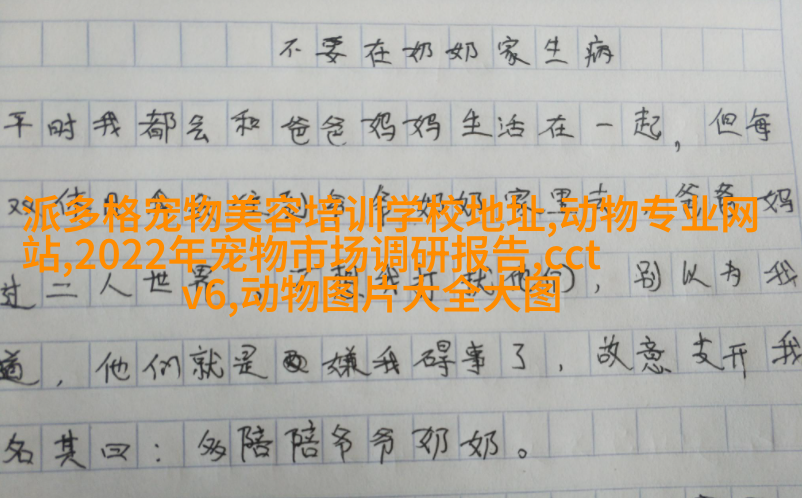 不要在奶奶家生病
平时我都会和爸爸妈妈生活在一起，但每
爷奶奶家里去，爸爸妈
派多格宠物美容培训学校地址,动物专业网
站,2022年宠物市场调研报告,cct
v6,动物图片大全大图
过二人世界，不想我打扰他们，别以为我
道，他们就是嫌我碍事了，故意支开我
名其曰：多陪陪爷爷奶奶。